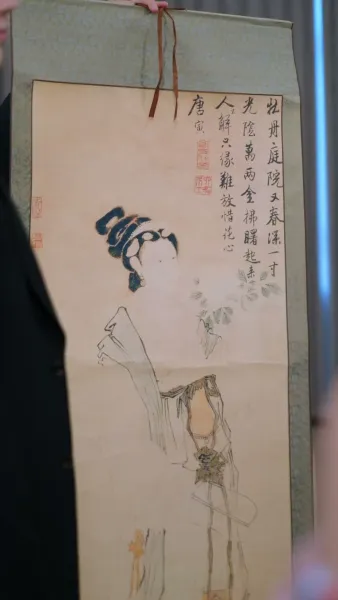 牡丹庭院又春深一寸
光陰萬兩金拂曙起来
人解只缘難放惜花心
唐寅